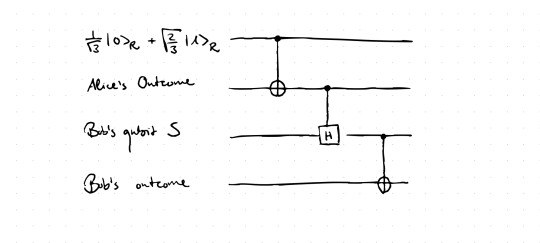 1/√3 |0⟩_R + √2/3 |1⟩_R
Alice's Outcome
Bob's qubit S
H
Bob's outcome